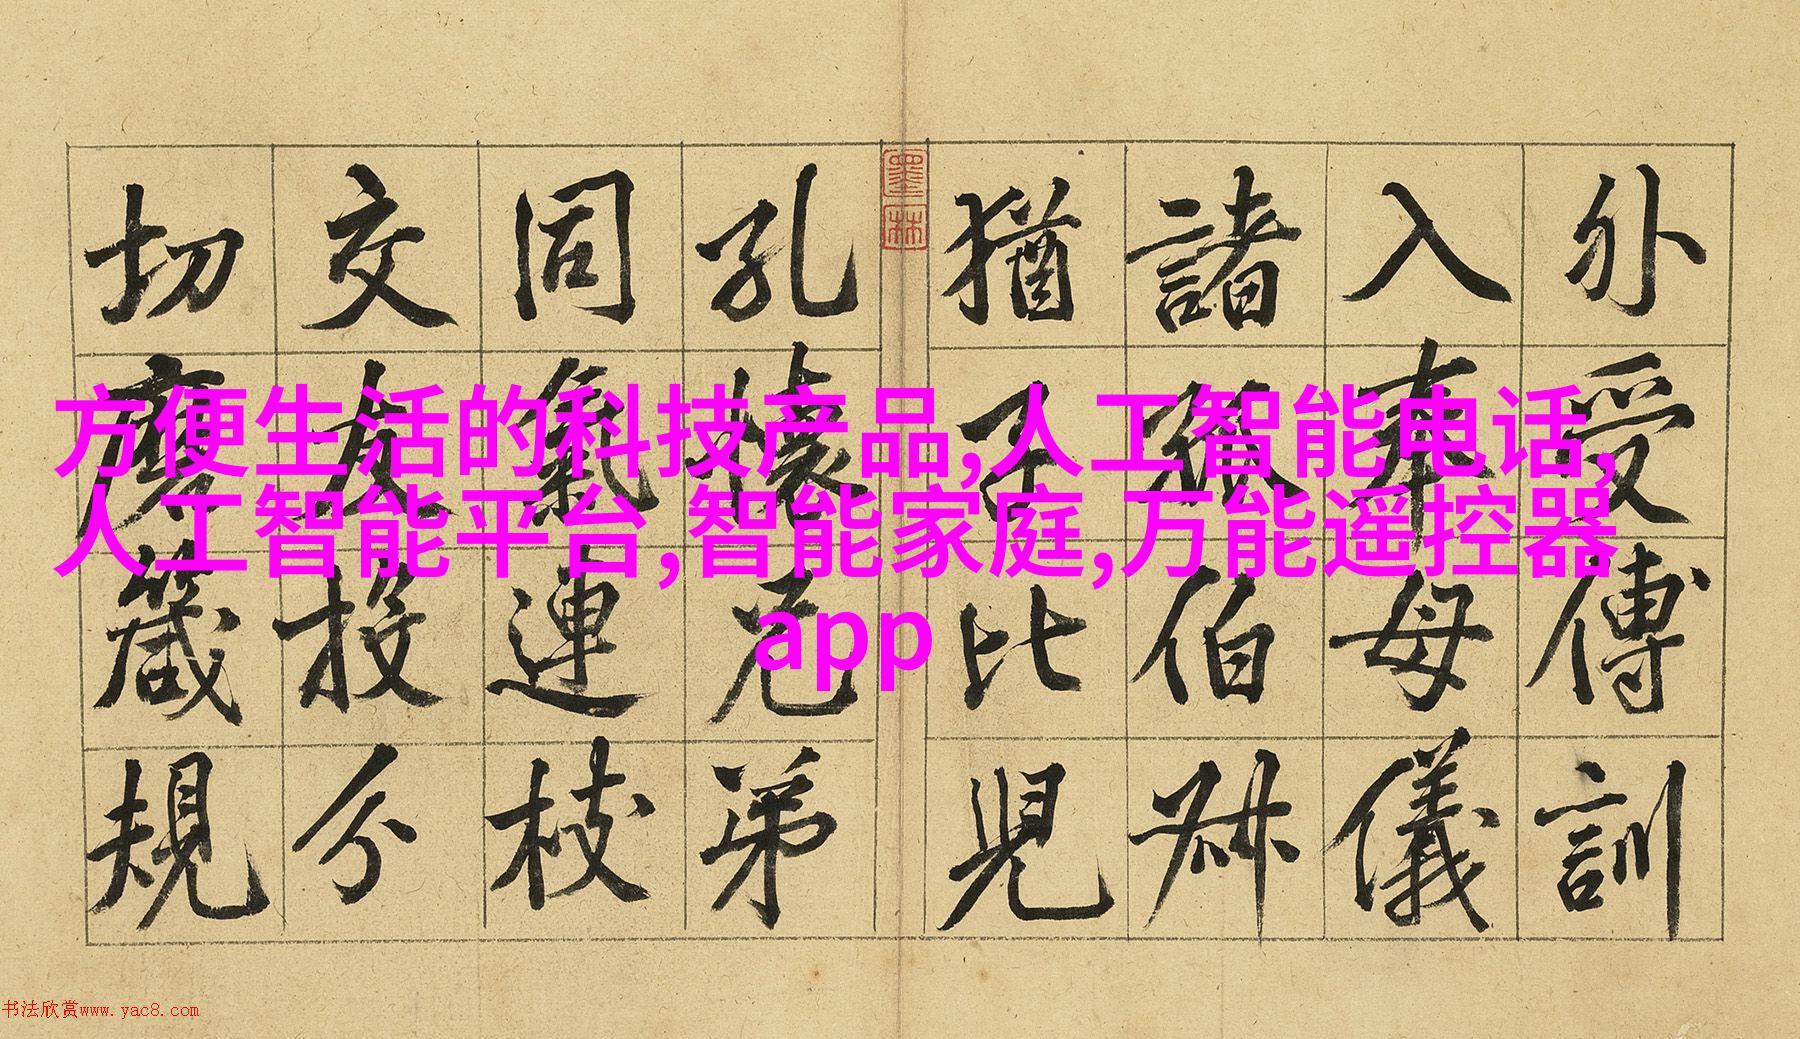 外受傅訓
入奉母儀
諸姑伯叔
猶子比兒
孔懷兄弟
同氣連枝
交友投分
切磨箴規
墨林
方便生活的科技产品,人工智能电话,
人工智能平台,智能家庭,万能遥控器
app
书法欣赏www.yac8.com